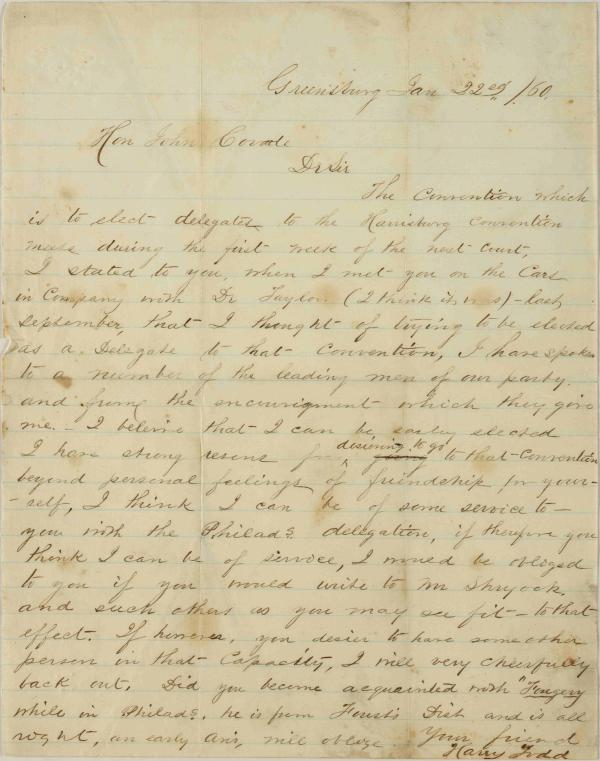 Greensburg Jan 22ed/60.
Hon John Covode
Dr Sir
The Convention which
is to elect delegates to the Harrisburg Convention
meets during the first week of the next Court,
I stated to you, when I met you on the Cars
in Company with Dr Taylor (I think it was) - last
September, that I thought of trying to be elected
as a Delegate to that Convention, I have spoke
to a number of the leading men of our party.
and from the encourigment which they give
me. - I beleive that I can be easley elected
I have strong resens for desiering to go to that Convention
beyond personal feelings of friendship for your-
-self, I think I can be of some service to -
you with the Philada. delegation, if therefore you
think I can be of service, I would be obliged
to you if you would write to Mr Shryock.
and such others as you may see fit - to that
effect. If however, you desier to have some other
person in that Capacity, I will very cheerfully
back out. Did you become acquainted with
while in Philada. he is from Dist and is all
right, an early Ans, will oblige Your friend
Harry Todd